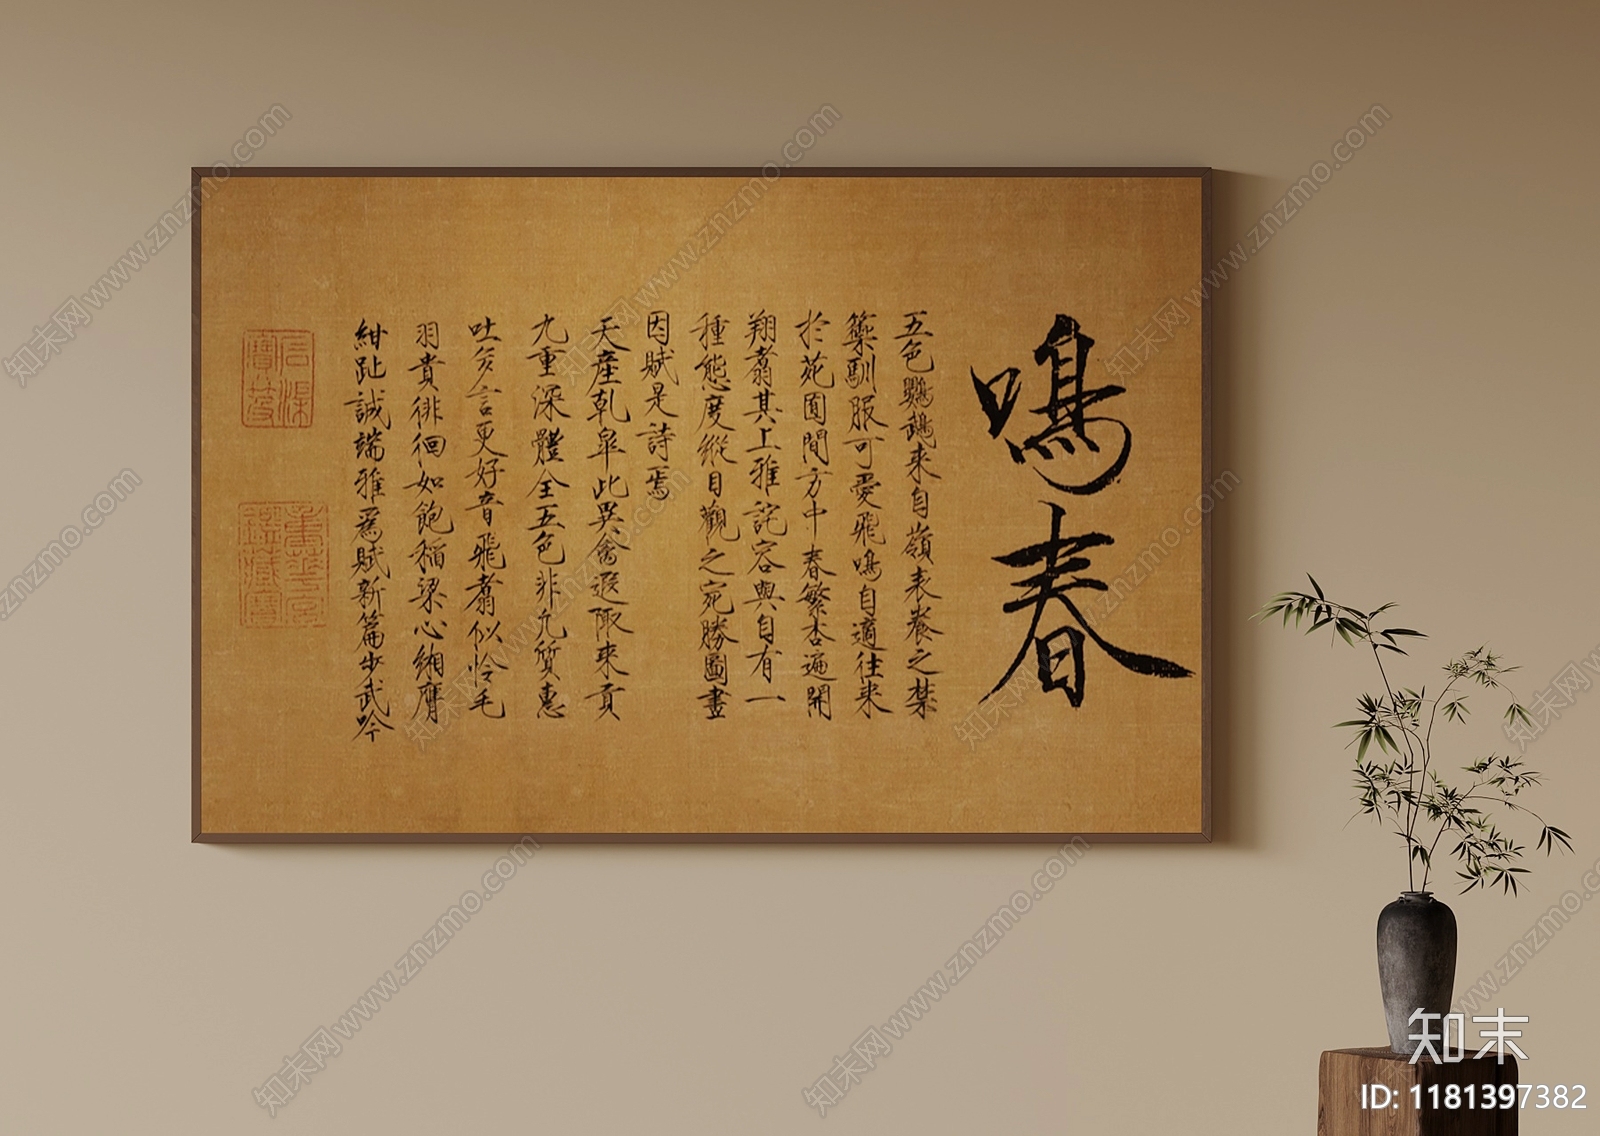 鳴春
五色鸚鵡来自嶺表養之禁
籞馴服可愛飛鳴自適往来
於苑囿間方中春繁杏遍開
翔翥其上雅詫容與自有一
種態度縱目觀之宛勝圖畫
因賦是詩焉
天産乹皐此異禽遐陬来貢
九重深體全五色非凡質惠
吐多言更好音飛翥似憐毛
羽貴徘徊如飽稲梁心緗膺
紺趾誠端雅爲賦新篇步武吟
知末
ID: 1181397382
知末网www.znzmo.com